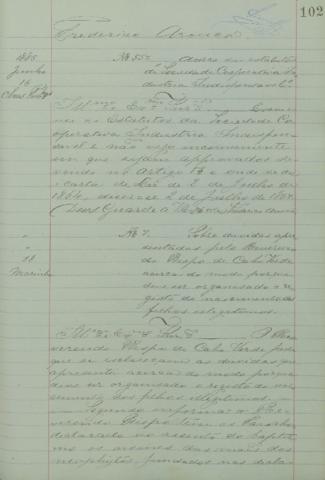 102
Frederico Arouca
1885
Junho
16
Nº 550 Acerca dos estatutos
da Sociedade Cooperativa In-
dustria Indispensavel
Ill.mo Ex.mo Snr. Exami-
nei os Estatutos da Sociedade Co-
operativa Industria Indispen-
savel e não vejo inconveniente
em que sejam approvados de-
vendo no Artigo 1º onde se diz
carta de Lei de 2 de Junho de
1864, dizer-se 2 de Julho de 1867.
Deus Guarde a
"
"
18
Marinha
Nº 7. Sobre duvidas apre-
sentadas pelo Reverendo
Bispo de Cabo Verde
acerca do modo porque
deve ser organisado o re-
gisto de nascimento dos
filhos illegitimos.
Ill.mo Ex.mo Snr. O Reve-
rendo Bispo de Cabo Verde pede
que se esclareçam as duvidas que
apresenta acerca do modo porque
deve ser organisado o registo de nas-
cimento dos filhos illegitimos.
Segundo informa o Reve-
rendo Bispo os Parochos
declarado no assento do baptis-
mo os nomes das mães dos
neophytos, fundados nas decla-